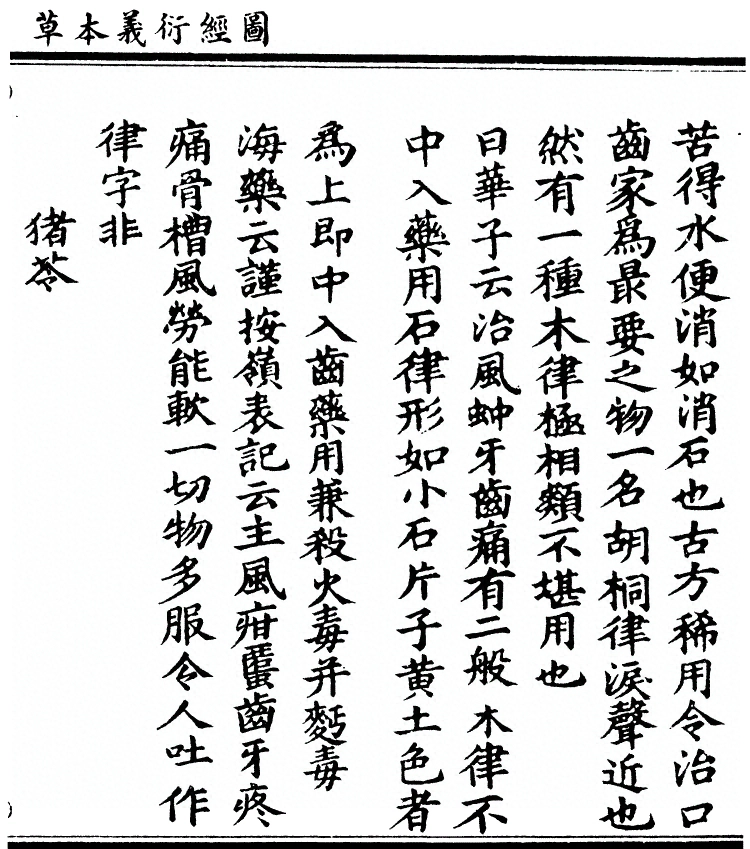 圖經衍義本草
苦得水便消如消石也古方稀用令治口
齒家爲最要之物一名胡桐律淚聲近也
然有一種木律極相類不堪用也
日華子云治風蚛牙齒痛有二般木律不
中入藥用石律形如小石片子黄土色者
爲上即中入齒藥用兼殺火毒并麪毒
海藥云謹按嶺表記云主風疳䘌齒牙疼
痛骨槽風勞能軟一切物多服令人吐作
律字非
猪苓